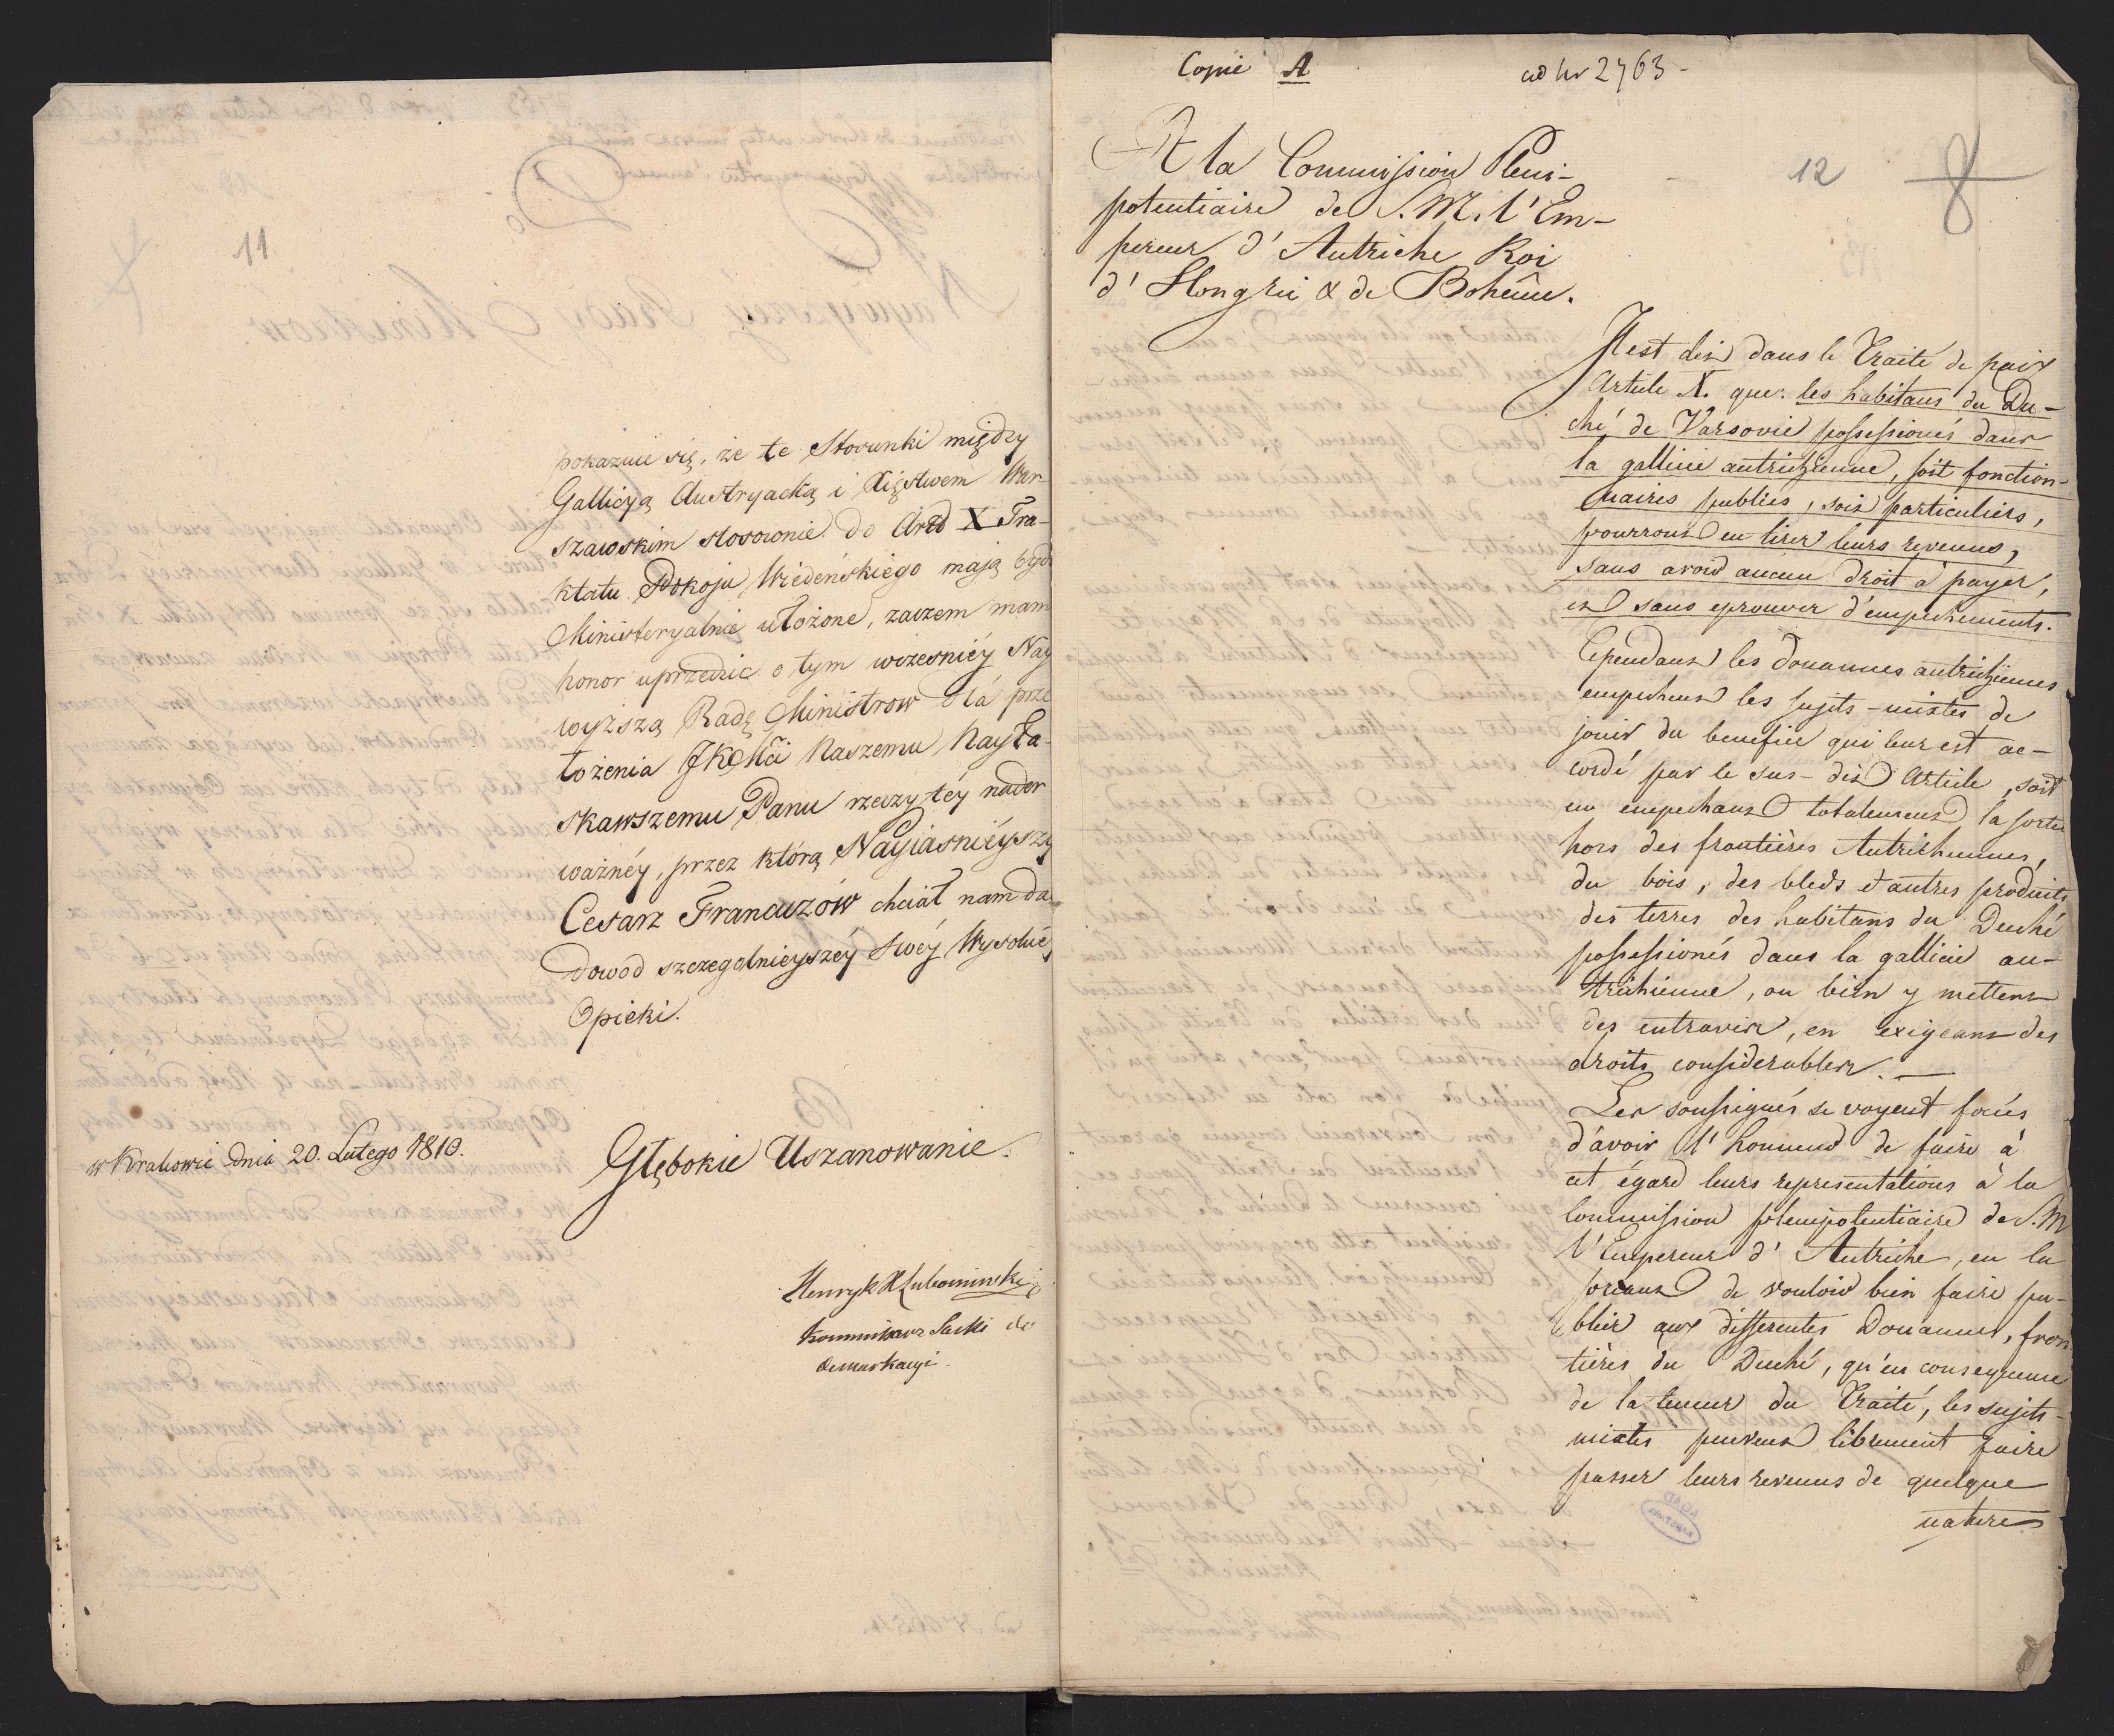 11
pokazuie się, że te Stosunki między
Gallicyą Austryacką i Xięstwem War
szawskim stosownie do Art X Tra-
ktatu Pokoju Wiedeńskiego mają bydź
Ministeryalnie ułożone, zaczem mam
honor uprzedzić o tym wcześniéy Nay
wyższą Radę Ministrow dla prze
łożenia JKMci Naszemu Nayła-
skawszemu Panu rzeczy téy nader
ważnéy, przez którą Nayiaśniéyszy
Cesarz Francuzów chciał nam da
dowód szczegolnieyszéy Swéy Wysokié
Opieki.
w Krakowie dnia 20. Lutego 1810.
Głębokie Uszanowanie.
Henryk X Lubomirski
Kommissarz Saski do
demarkacyi
Copie A
ad Nr 2763-
12
8
A la Commission Pleni-
potentiaire de S.M. l'Em-
pereur d'Autriche Roi
d'Hongrie & de Bohême.
Il est dit dans le Traité de paix
Article X. que: les habitans du Du-
ché de Varsovie possessionés dans
la gallicie autrichienne, soit fonction-
naires publics, soit particuliers,
pourront en tirer leurs revenus,
sans avoir aucun droit à payer,
et sans eprouver d'empechements.
Cependant les douannes autrichiennes
empechent les sujets-mixtes de
jouir du benefice qui leur est ac-
cordé par le sus-dit Article, soit
en empechant totalement la sortie
hors des frontières Autrichiennes,
du bois, des bleds et autres produits
des terres des habitans du Duché
possessionés dans la gallicie au-
trichienne, ou bien y mettent
des entraves, en exigeant des
droits considerables. —
Les soussignés se voyent forcés
d'avoir l'honneur de faire à
cet égard leurs representations à la
Commission plenipotentiaire de S.M
l'Empereur d'Autriche, en la
priant de vouloir bien faire pu-
blier aux differentes Douannes, fron
tières du Duché, qu'en consequence
de la teneur du Traité, les sujets-
mixtes peuvent librement faire
passer leurs revenus de quelque
nature
AGAD